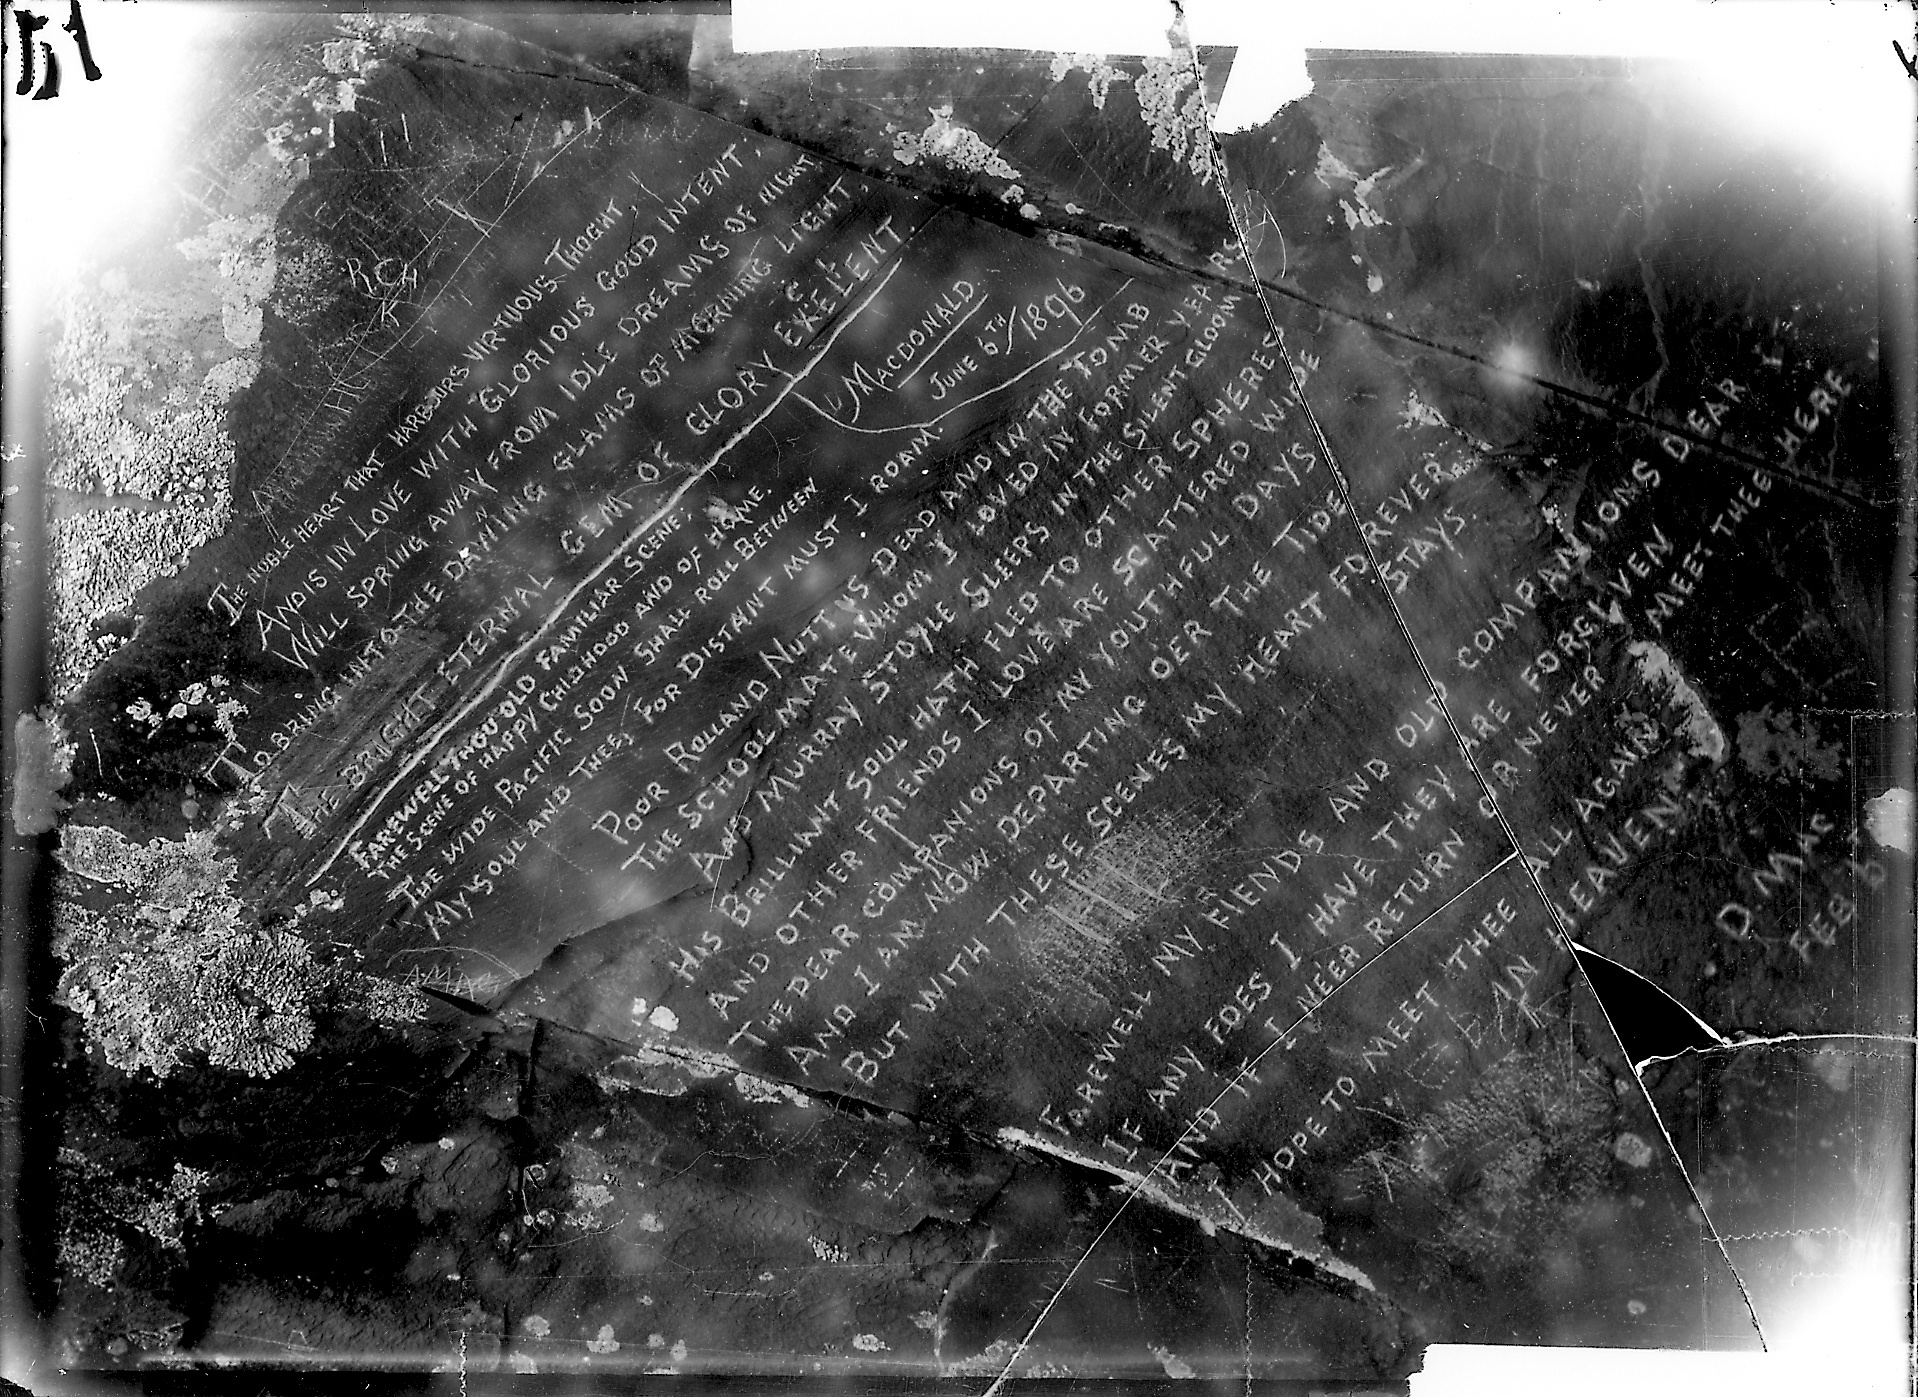 THE NOBLE HEART THAT HARBOURS VIRTUOUS THOGHT,
AND IS IN LOVE WITH GLORIOUS GOOD INTENT,
WILL SPRING AWAY FROM IDLE DREAMS OF NIGHT
TO BRING INTO THE DAWING GLAMS OF MORNING LIGHT,
THE BRIGHT ETERNAL GEM OF GLORY EXELENT.
MACDONALD
JUNE 6TH/1896
FAREWELL THOU OLD FAMILIAR SCENE,
THE SCENE OF HAPPY CHILDHOOD AND OF HOME.
THE WIDE PACIFIC SOON SHALL ROLL BETWEEN
MY SOUL AND THEE, FOR DISTANT MUST I ROAM.
POOR ROLLAND NUTT IS DEAD AND IN THE TOMB
THE SCHOOL MATE WHOM I LOVED IN FORMER YEARS
AND MURRAY STOYLE SLEEPS IN THE SILENT GLOOM
HIS BRILLIANT SOUL HATH FLED TO OTHER SPHERES
AND OTHER FRIENDS I LOVE ARE SCATTERED WIDE
THE DEAR COMPANIONS OF MY YOUTHFUL DAYS
AND I AM NOW DEPARTING OER THE TIDE
BUT WITH THESE SCENES MY HEART FOREVER STAYS.
FAREWELL MY FIENDS AND OLD COMPANIONS DEAR
IF ANY FOES I HAVE THEY ARE FORGIVEN
AND IF I NEER RETURN OR NEVER MEET THEE HERE
I HOPE TO MEET THEE ALL AGAIN IN HEAVEN.
D. MAC
FEB
RCH
K